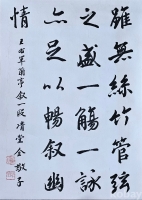 雖無絲竹管弦
之盛一觴一詠
亦足以暢叙幽
情
王右軍蘭亭叙一段 堂金敬子